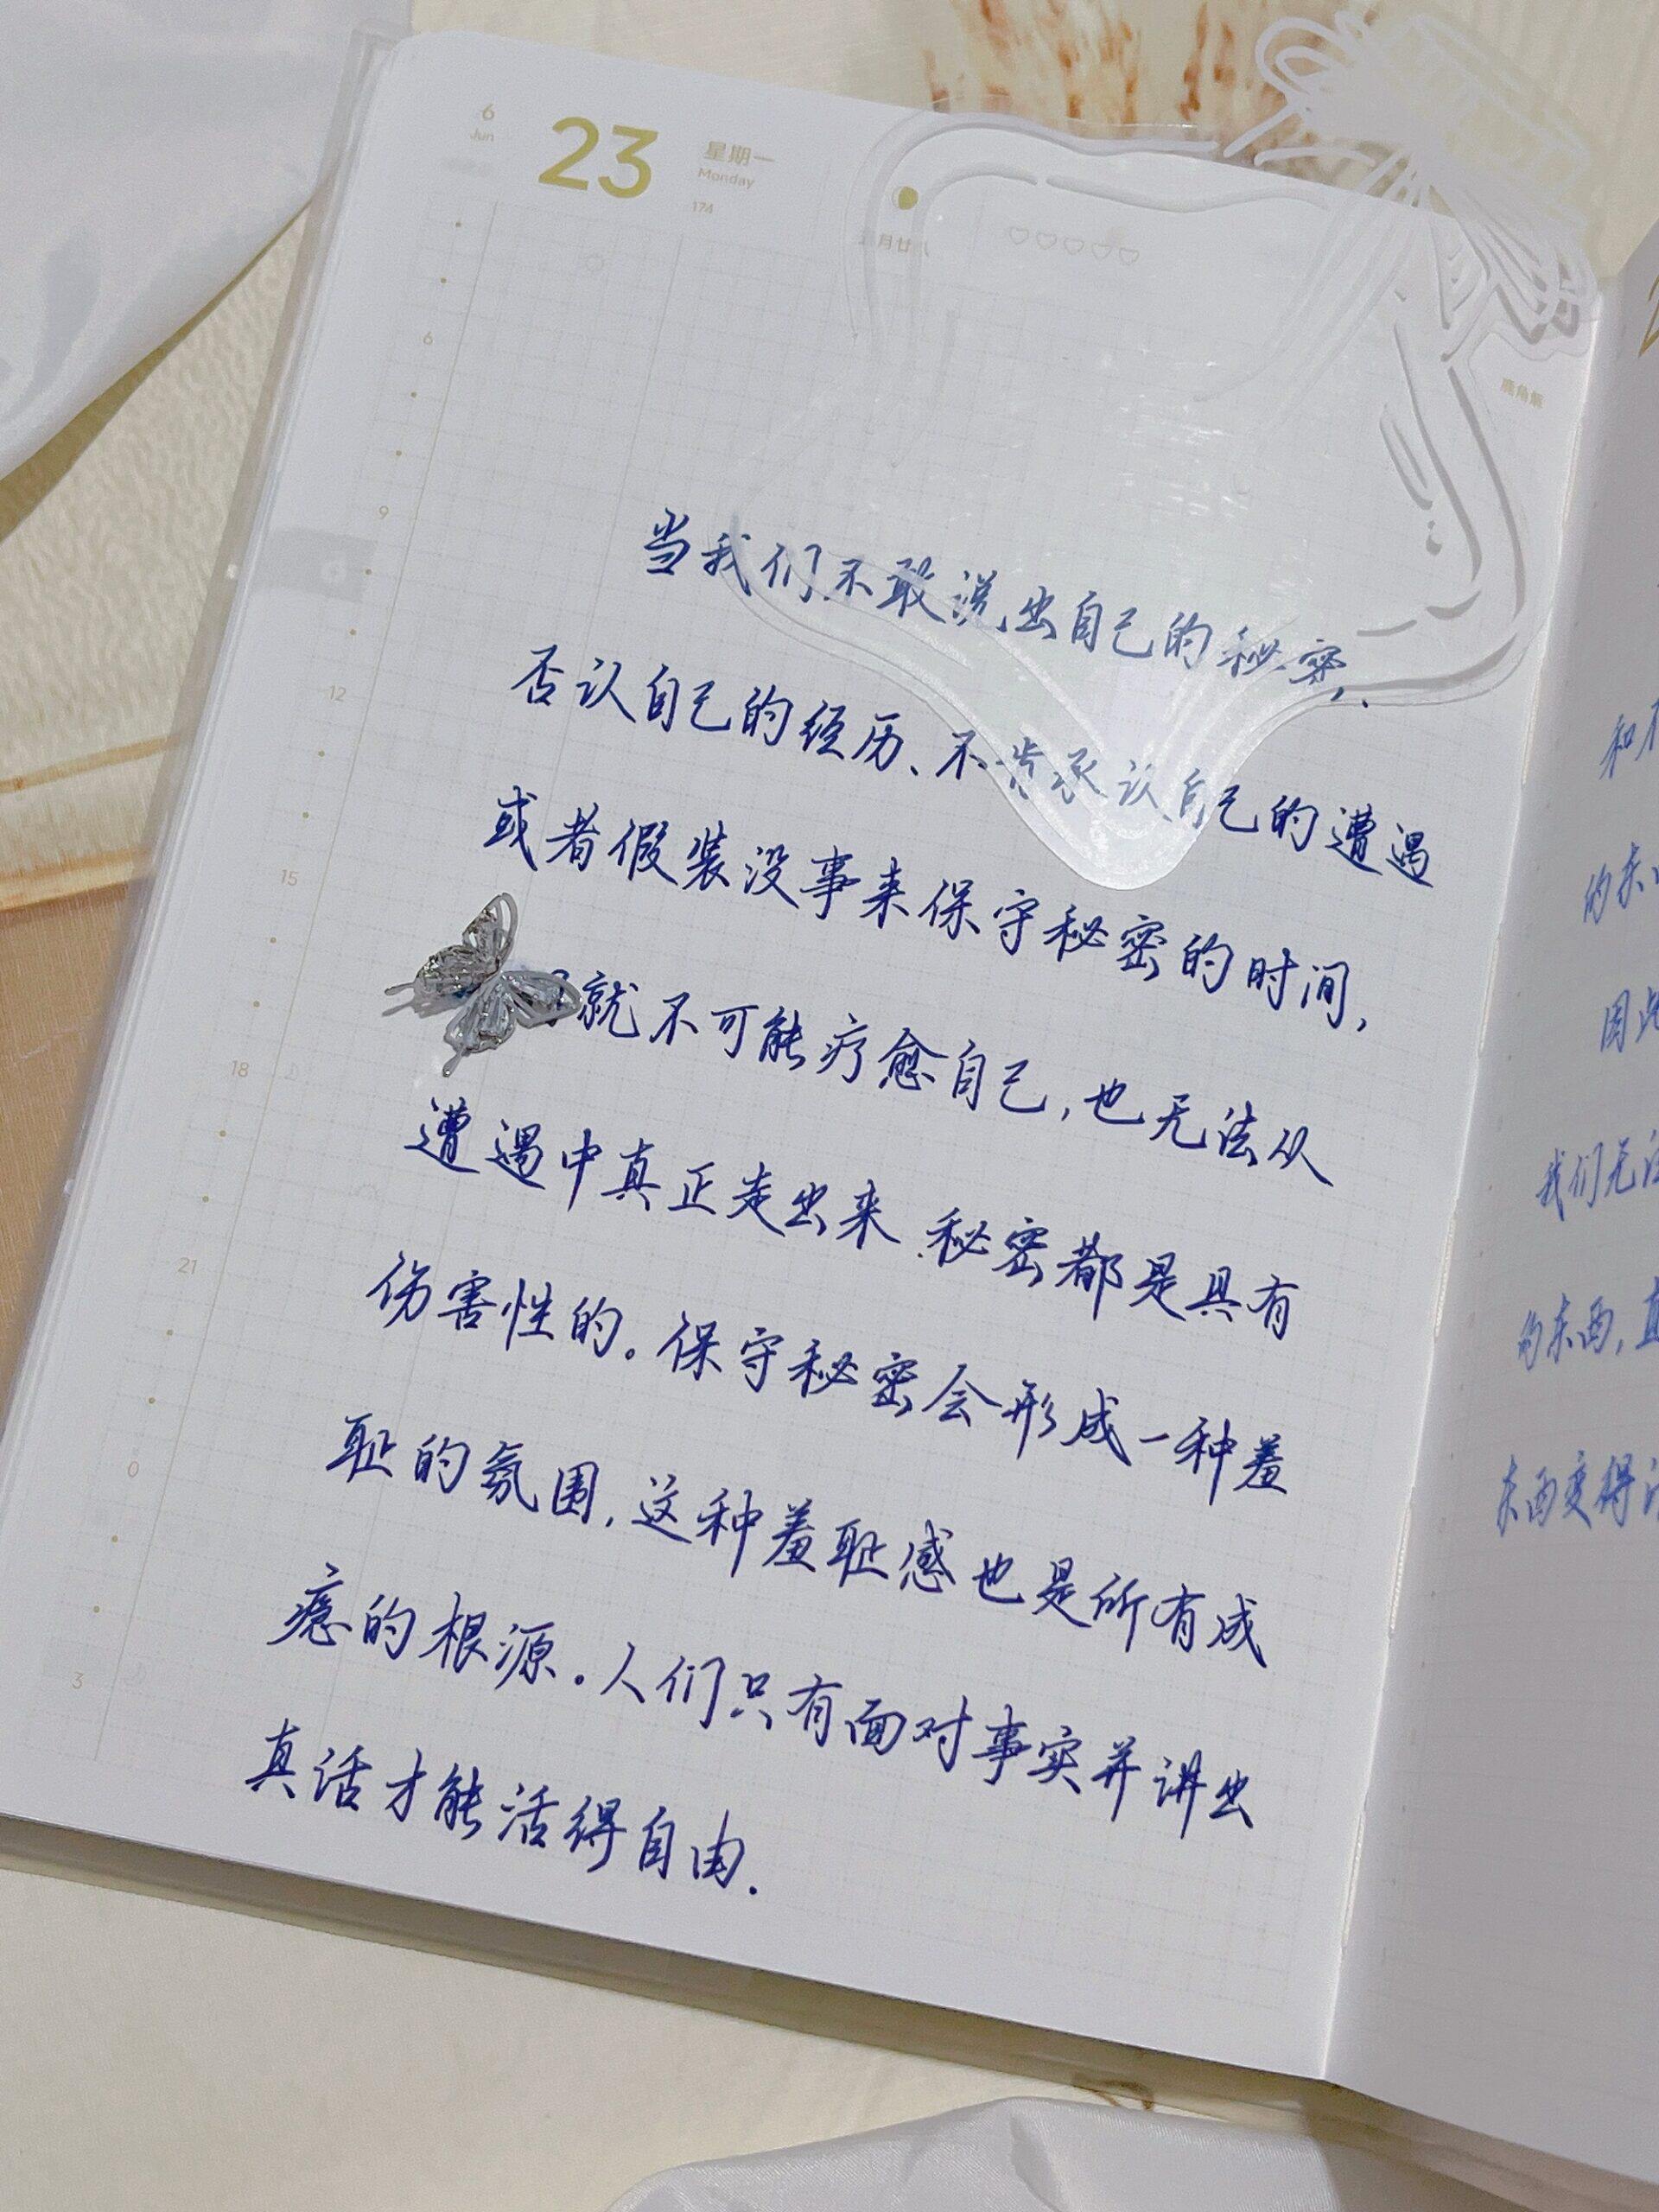 6
Jun
23
星期一
Monday
174
月廿
鹿角解
6
9
12
15
18
21
0
3
当我们不敢说出自己的秘密,
否认自己的经历、不肯承认自己的遭遇
或者假装没事来保守秘密的时间,
就不可能疗愈自己,也无法从
遭遇中真正走出来.秘密都是具有
伤害性的。保守秘密会形成一种羞
耻的氛围,这种羞耻感也是所有成
瘾的根源.人们只有面对事实并讲出
真话才能活得自由.
和
的东
因此
我们无法
的东西,直
东西变得